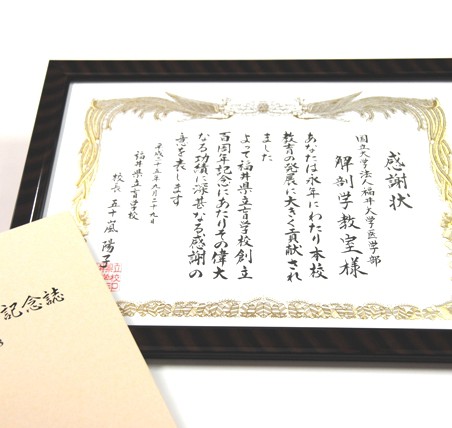 感謝状
国立大学法人福井大学医学部
解剖学教室様
あなたは永年にわたり本校
教育の発展に大きく貢献され
ました
よって福井県立盲学校創立
百周年記念にあたりその偉大
なる功績に深甚なる感謝の
意を表します
平成二十五年九月二十九日
福井県立盲学校
校長 五十嵐 陽子
記念誌